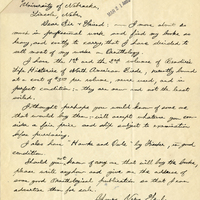 University of Nebraska,
Lincoln, Nebr.
Dear Sir & Friend: - I am about do
more in professional work, and find my books so
heavy, and costly to carry, that I have decided to
sell most of my works on Ornithology.
I have the 1st and the 2nd volumes of Bendire's
Life Histories of North American Birds, recently bound
at a cost of per volume, each, and in
perfect condition; - they are new and not the least
soiled.
I thought perhaps you would know of some one
that would buy them - will accept whatever you con-
sider as fair price, and ship subject to examination
before purchasing.
I also have "Hawks and Owls" by Fisher, in good
condition.
Should you not know of any one that will buy the books
please write anyhow and give me the address of
some good Ornithological publication so that I can
advertise them for sale.